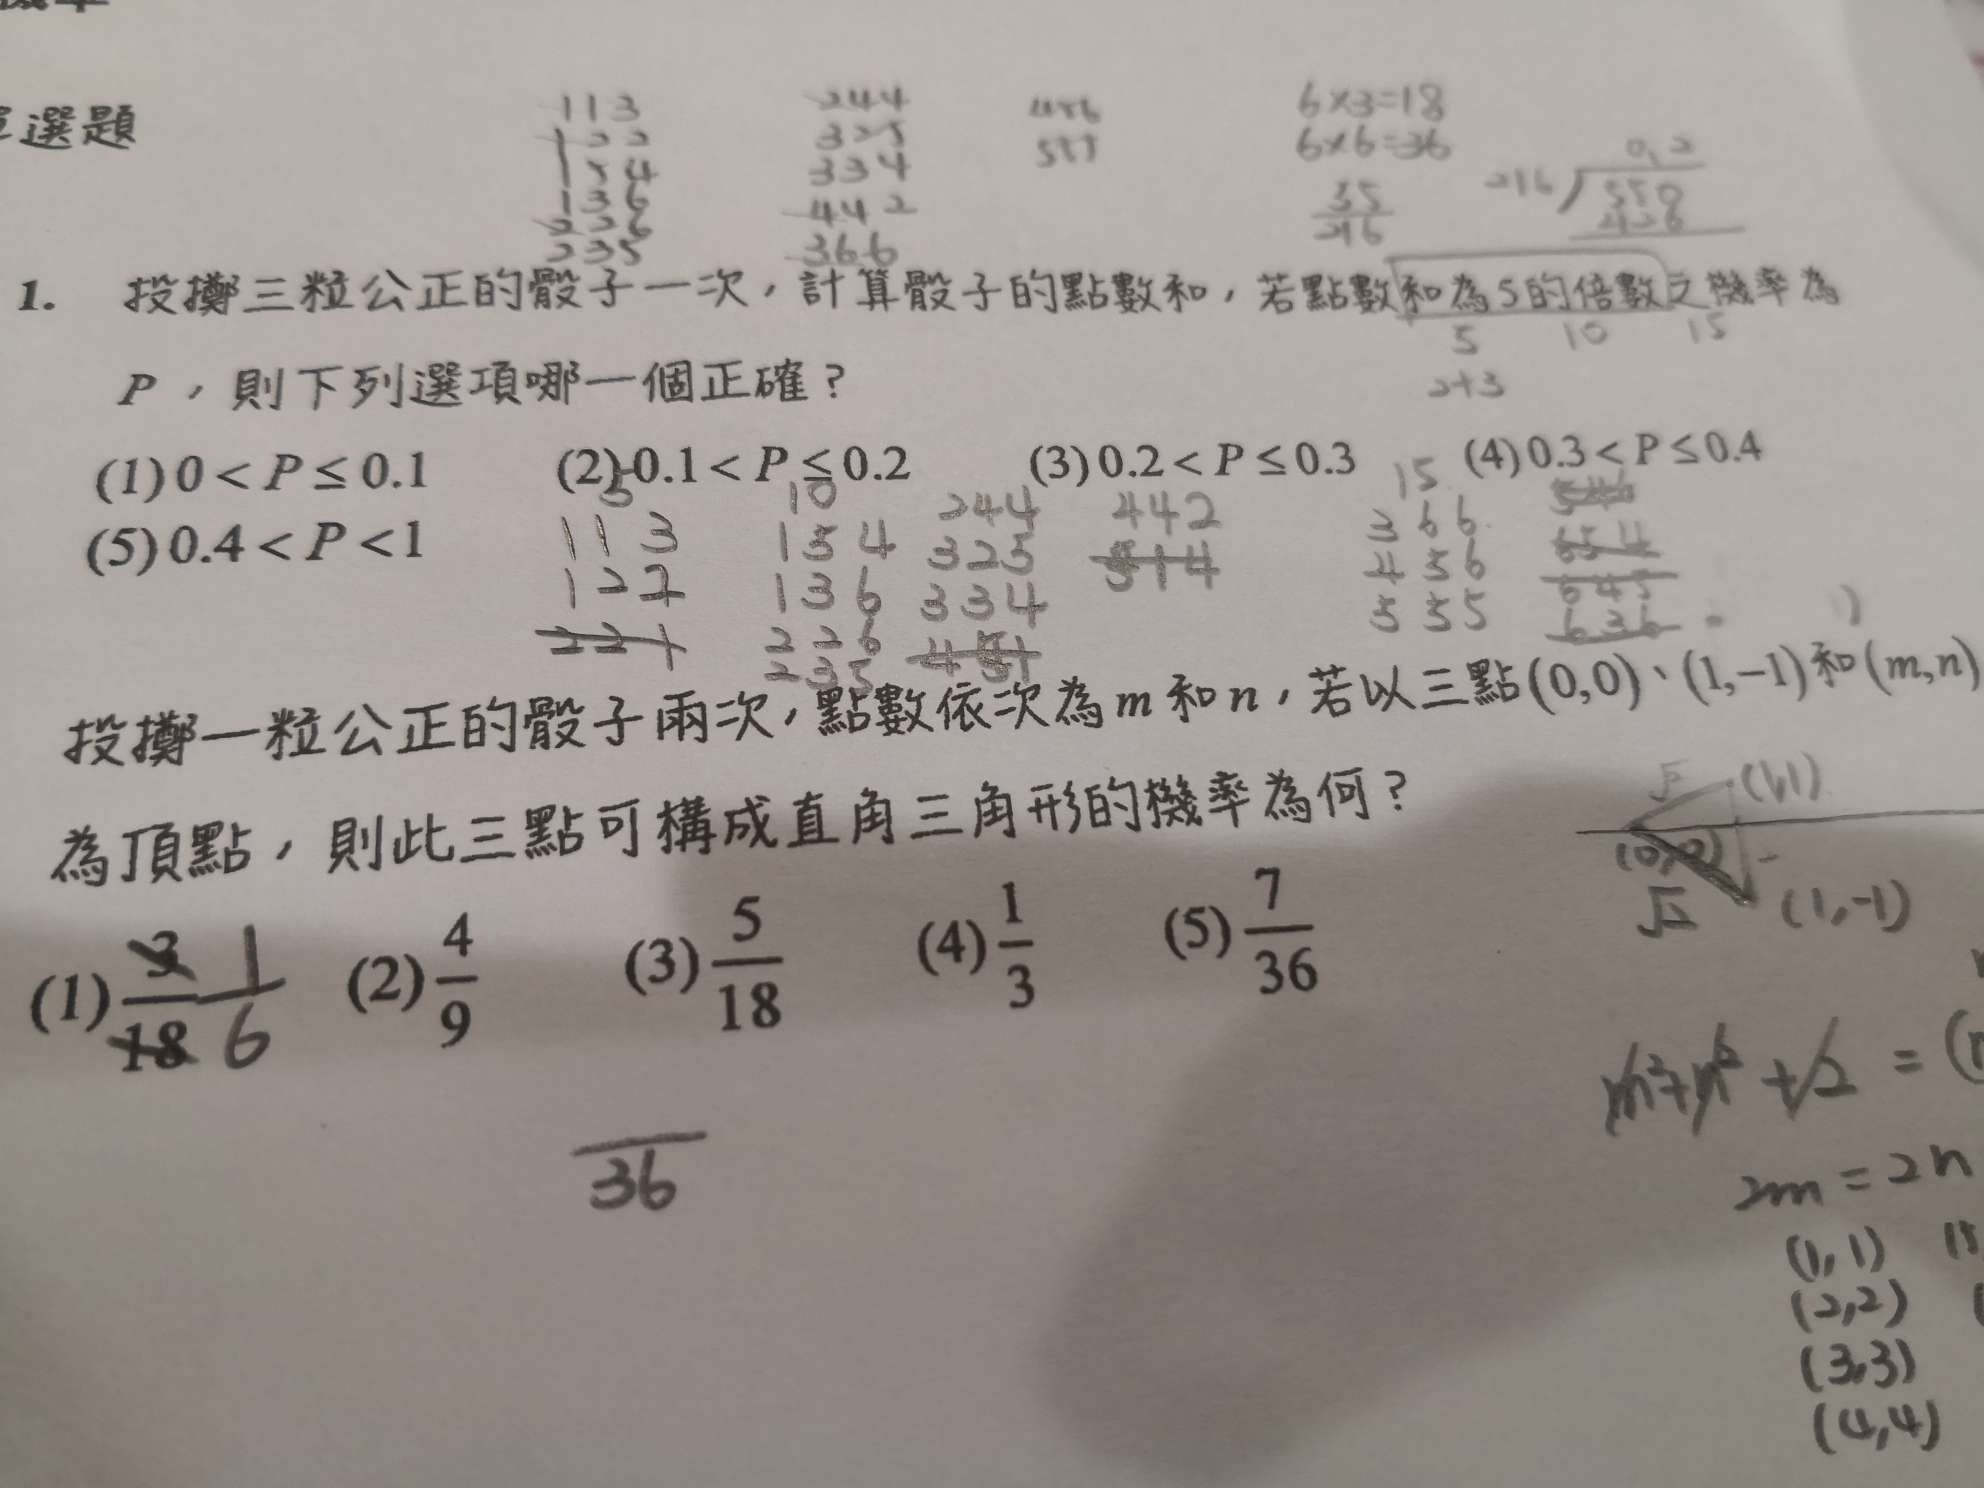 選題
113
122
154
136
226
235
244
325
334
442
366
456
555
6×3=18
6×6=36
35
216
0.2
216
550
426
1. 投擲三粒公正的骰子一次，計算骰子的點數和，若點數和為5的倍數之機率為
5 10 15
2+3
P，則下列選項哪一個正確？
(1) 0 < P ≤ 0.1 (2) 0.1 < P ≤ 0.2 (3) 0.2 < P ≤ 0.3 (4) 0.3 < P ≤ 0.4
(5) 0.4 < P < 1
5
113
122
221
10
154
136
226
235
244
325
334
451
442
514
15
366
456
555
546
654
645
636
投擲一粒公正的骰子兩次，點數依次為m和n，若以三點(0,0)、(1,−1)和(m,n)
為頂點，則此三點可構成直角三角形的機率為何？
(1) 3/18 1/6 (2) 4/9 (3) 5/18 (4) 1/3 (5) 7/36
36
(1,1)
(0,0)
√2
(1,-1)
m²+n²+2 = (
2m = 2n
(1,1)
(2,2)
(3,3)
(4,4)